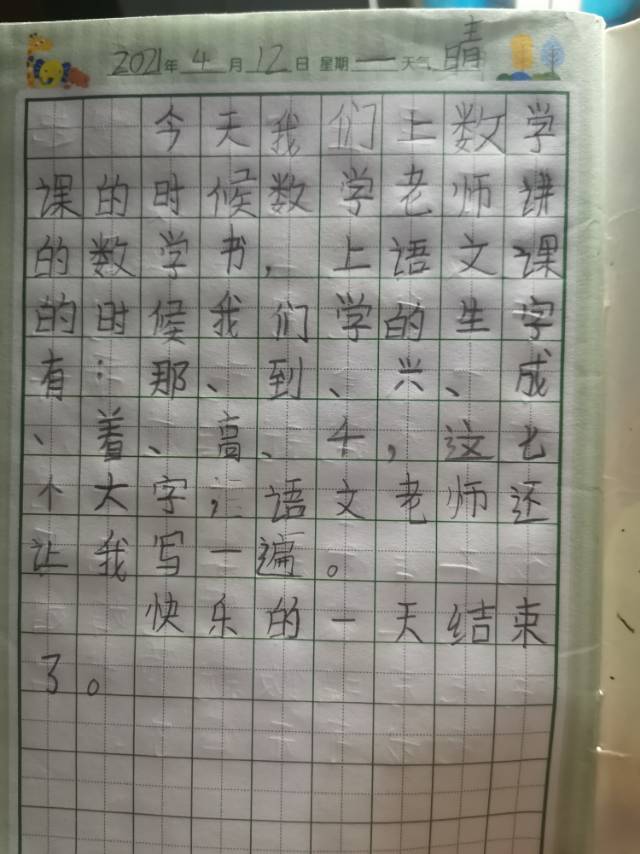 2021年4月12日 星期一 天气 晴
今天我们上数学
课的时候数学老师讲
的数学书，上语文课
的时候我们学的生字
有：那、到、兴、成
、着、高、千，这七
个大字，语文老师还
让我写一遍。
快乐的一天结束
了。